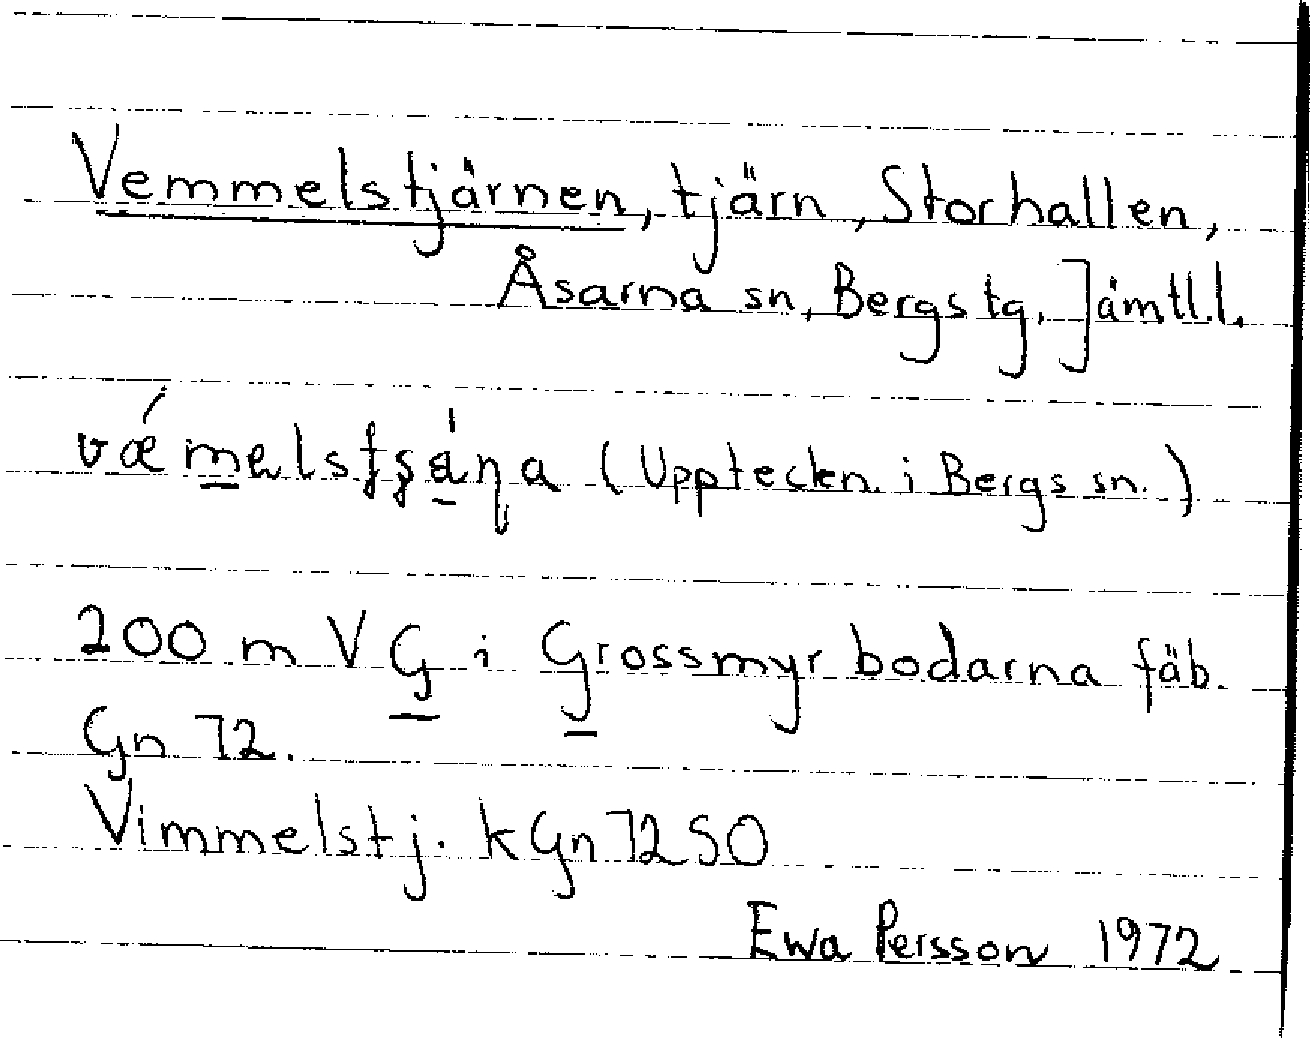 Vemmelstjärnen, tjärn, Storhallen,
Åsarna sn, Bergs tg, Jämtl l.
(Uppteckn. i Bergs sn.)
200 m V G i Grossmyrbodarna fäb.
Gn 72.
Vimmelstj. kGn72SO
Ewa Persson 1972